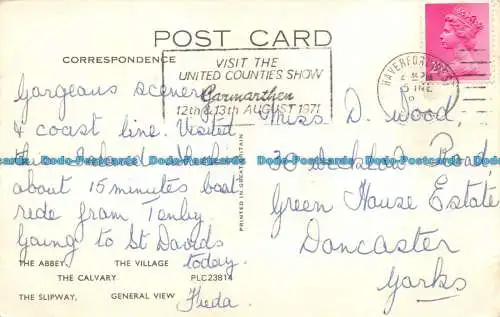 POST CARD
CORRESPONDENCE
VISIT THE
UNITED COUNTIES SHOW
Carmarthen
12th & 13th AUGUST 1971
HAVERFORDWEST
Gorgeous scenery
& coast line. Visited
this Island which
about 15 minutes boat
ride from Tenby.
Going to St Davids
today.
Freda.
Miss D. Wood,
30 Road,
Green House Estate
Doncaster
Yorks
PRINTED IN GREAT BRITAIN
THE ABBEY THE VILLAGE
THE CALVARY PLC23814
THE SLIPWAY, GENERAL VIEW
Dodo-Postcards Dodo-Postcards Dodo-Postcards Dodo-Postcards Dodo-Postcards Dodo-Postcards